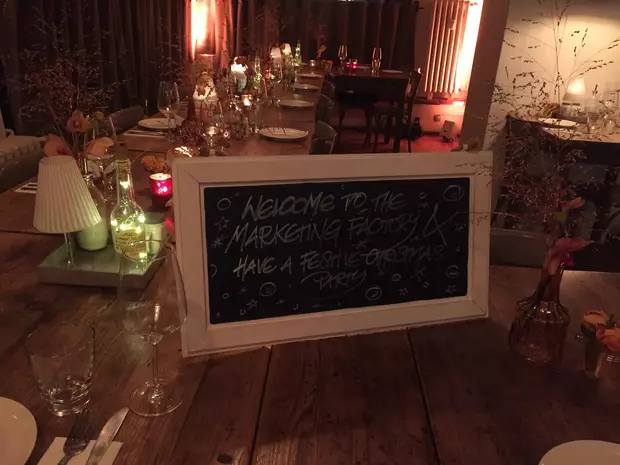 WELCOME TO THE
MARKETING FACTORY &
HAVE A FESTIVE CHRISTMAS
PARTY